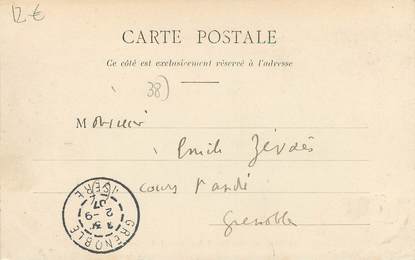 12 €
CARTE POSTALE
Ce côté est exclusivement réservé à l'adresse
38)
Monsieur
Emile Zévdès
cours
Grenoble
GRENOBLE
ISÈRE